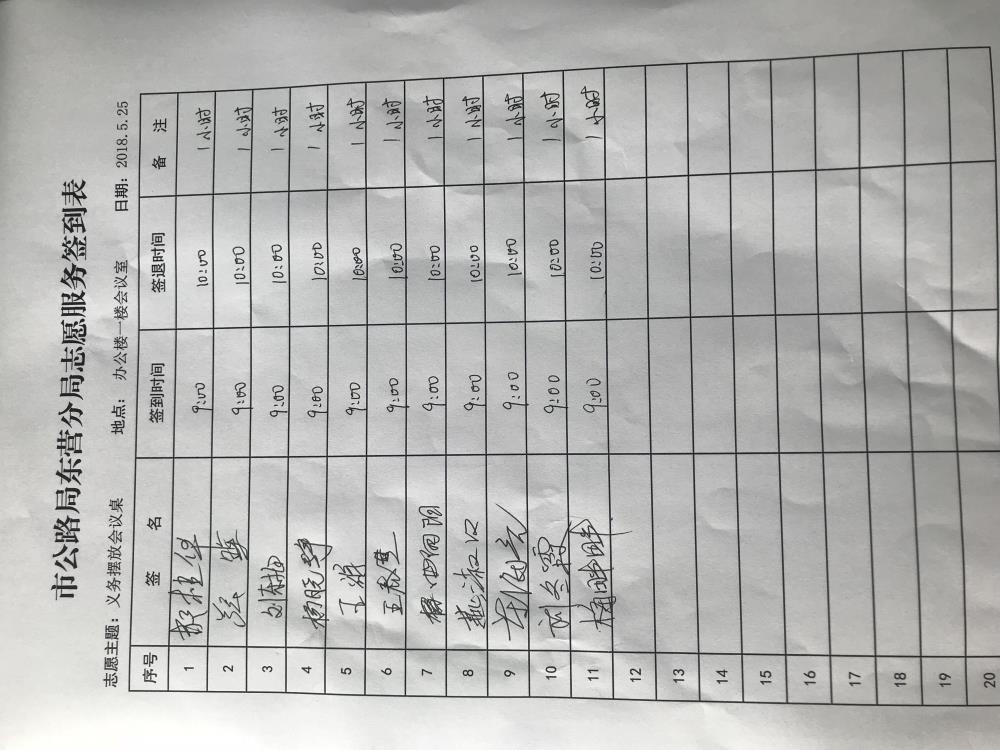 市公路局东营分局志愿服务签到表
志愿主题：义务摆放会议桌 地点： 办公楼一楼会议室 日期：2018.5.25
序号 签 名 签到时间 签退时间 备 注
1 9:00 10:00 1小时
2 9:00 10:00 1小时
3 9:00 10:00 1小时
4 杨晓 9:00 10:00 1小时
5 9:00 10:00 1小时
6 9:00 10:00 1小时
7 9:00 10:00 1小时
8 9:00 10:00 1小时
9 9:00 10:00 1小时
10 9:00 10:00 1小时
11 9:00 10:00 1小时
12
13
14
15
16
17
18
19
20